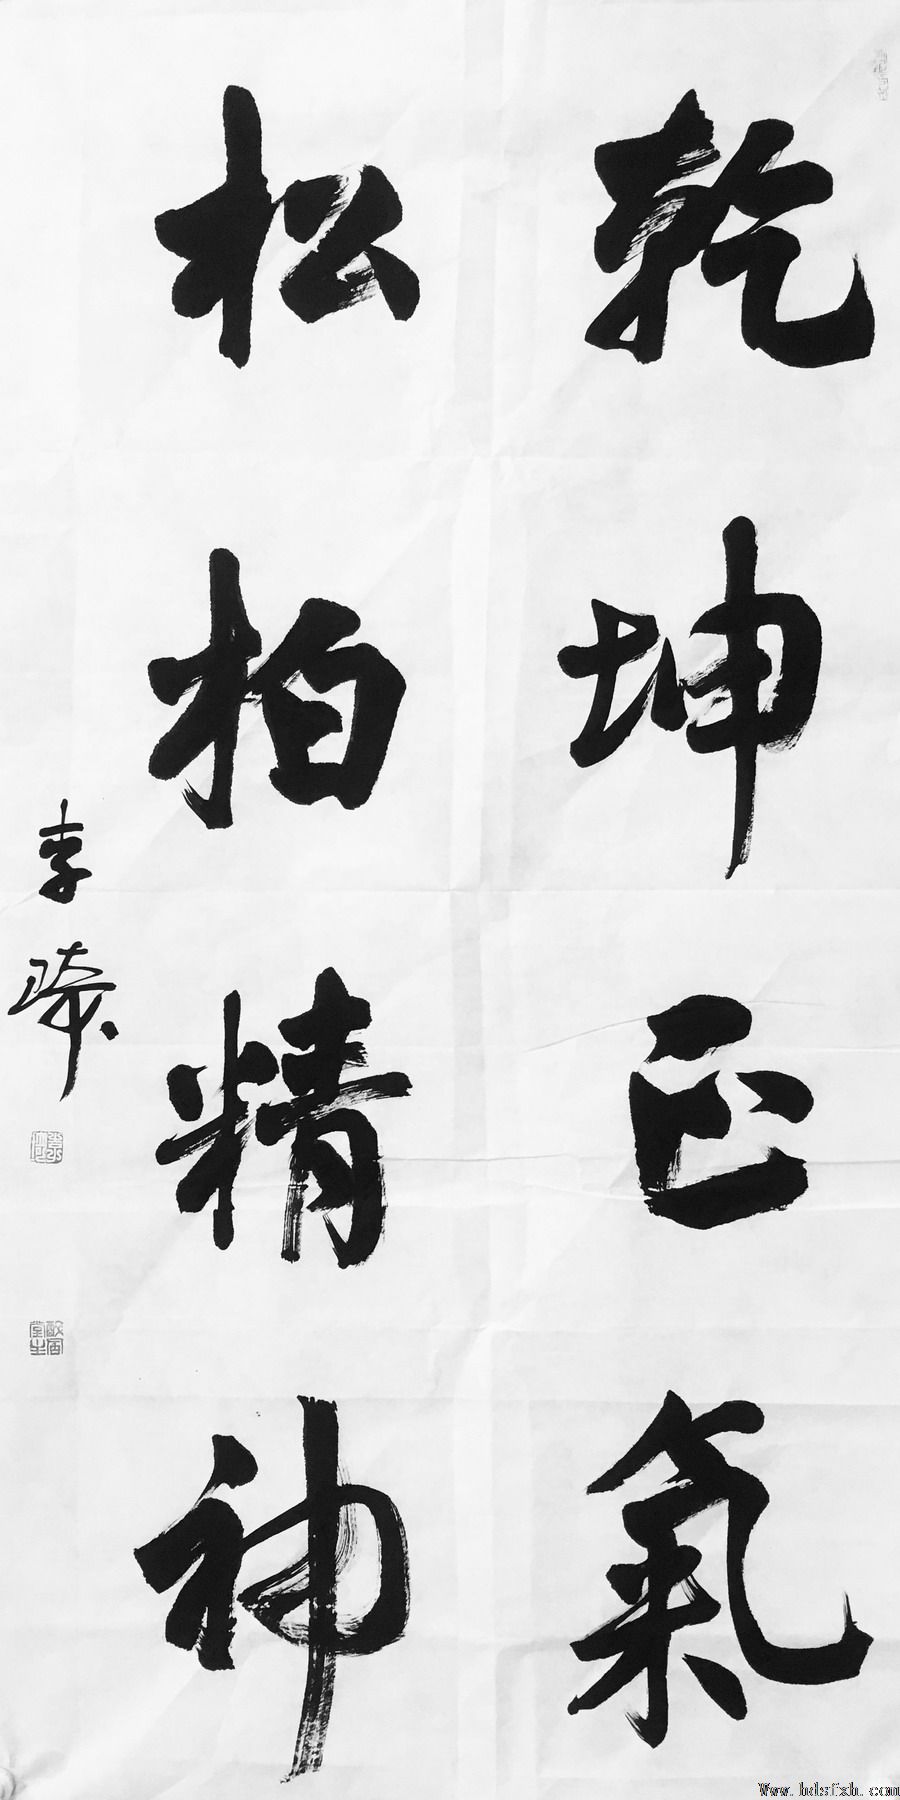 乾坤正氣
松柏精神
李
Www.hdsfxh.com